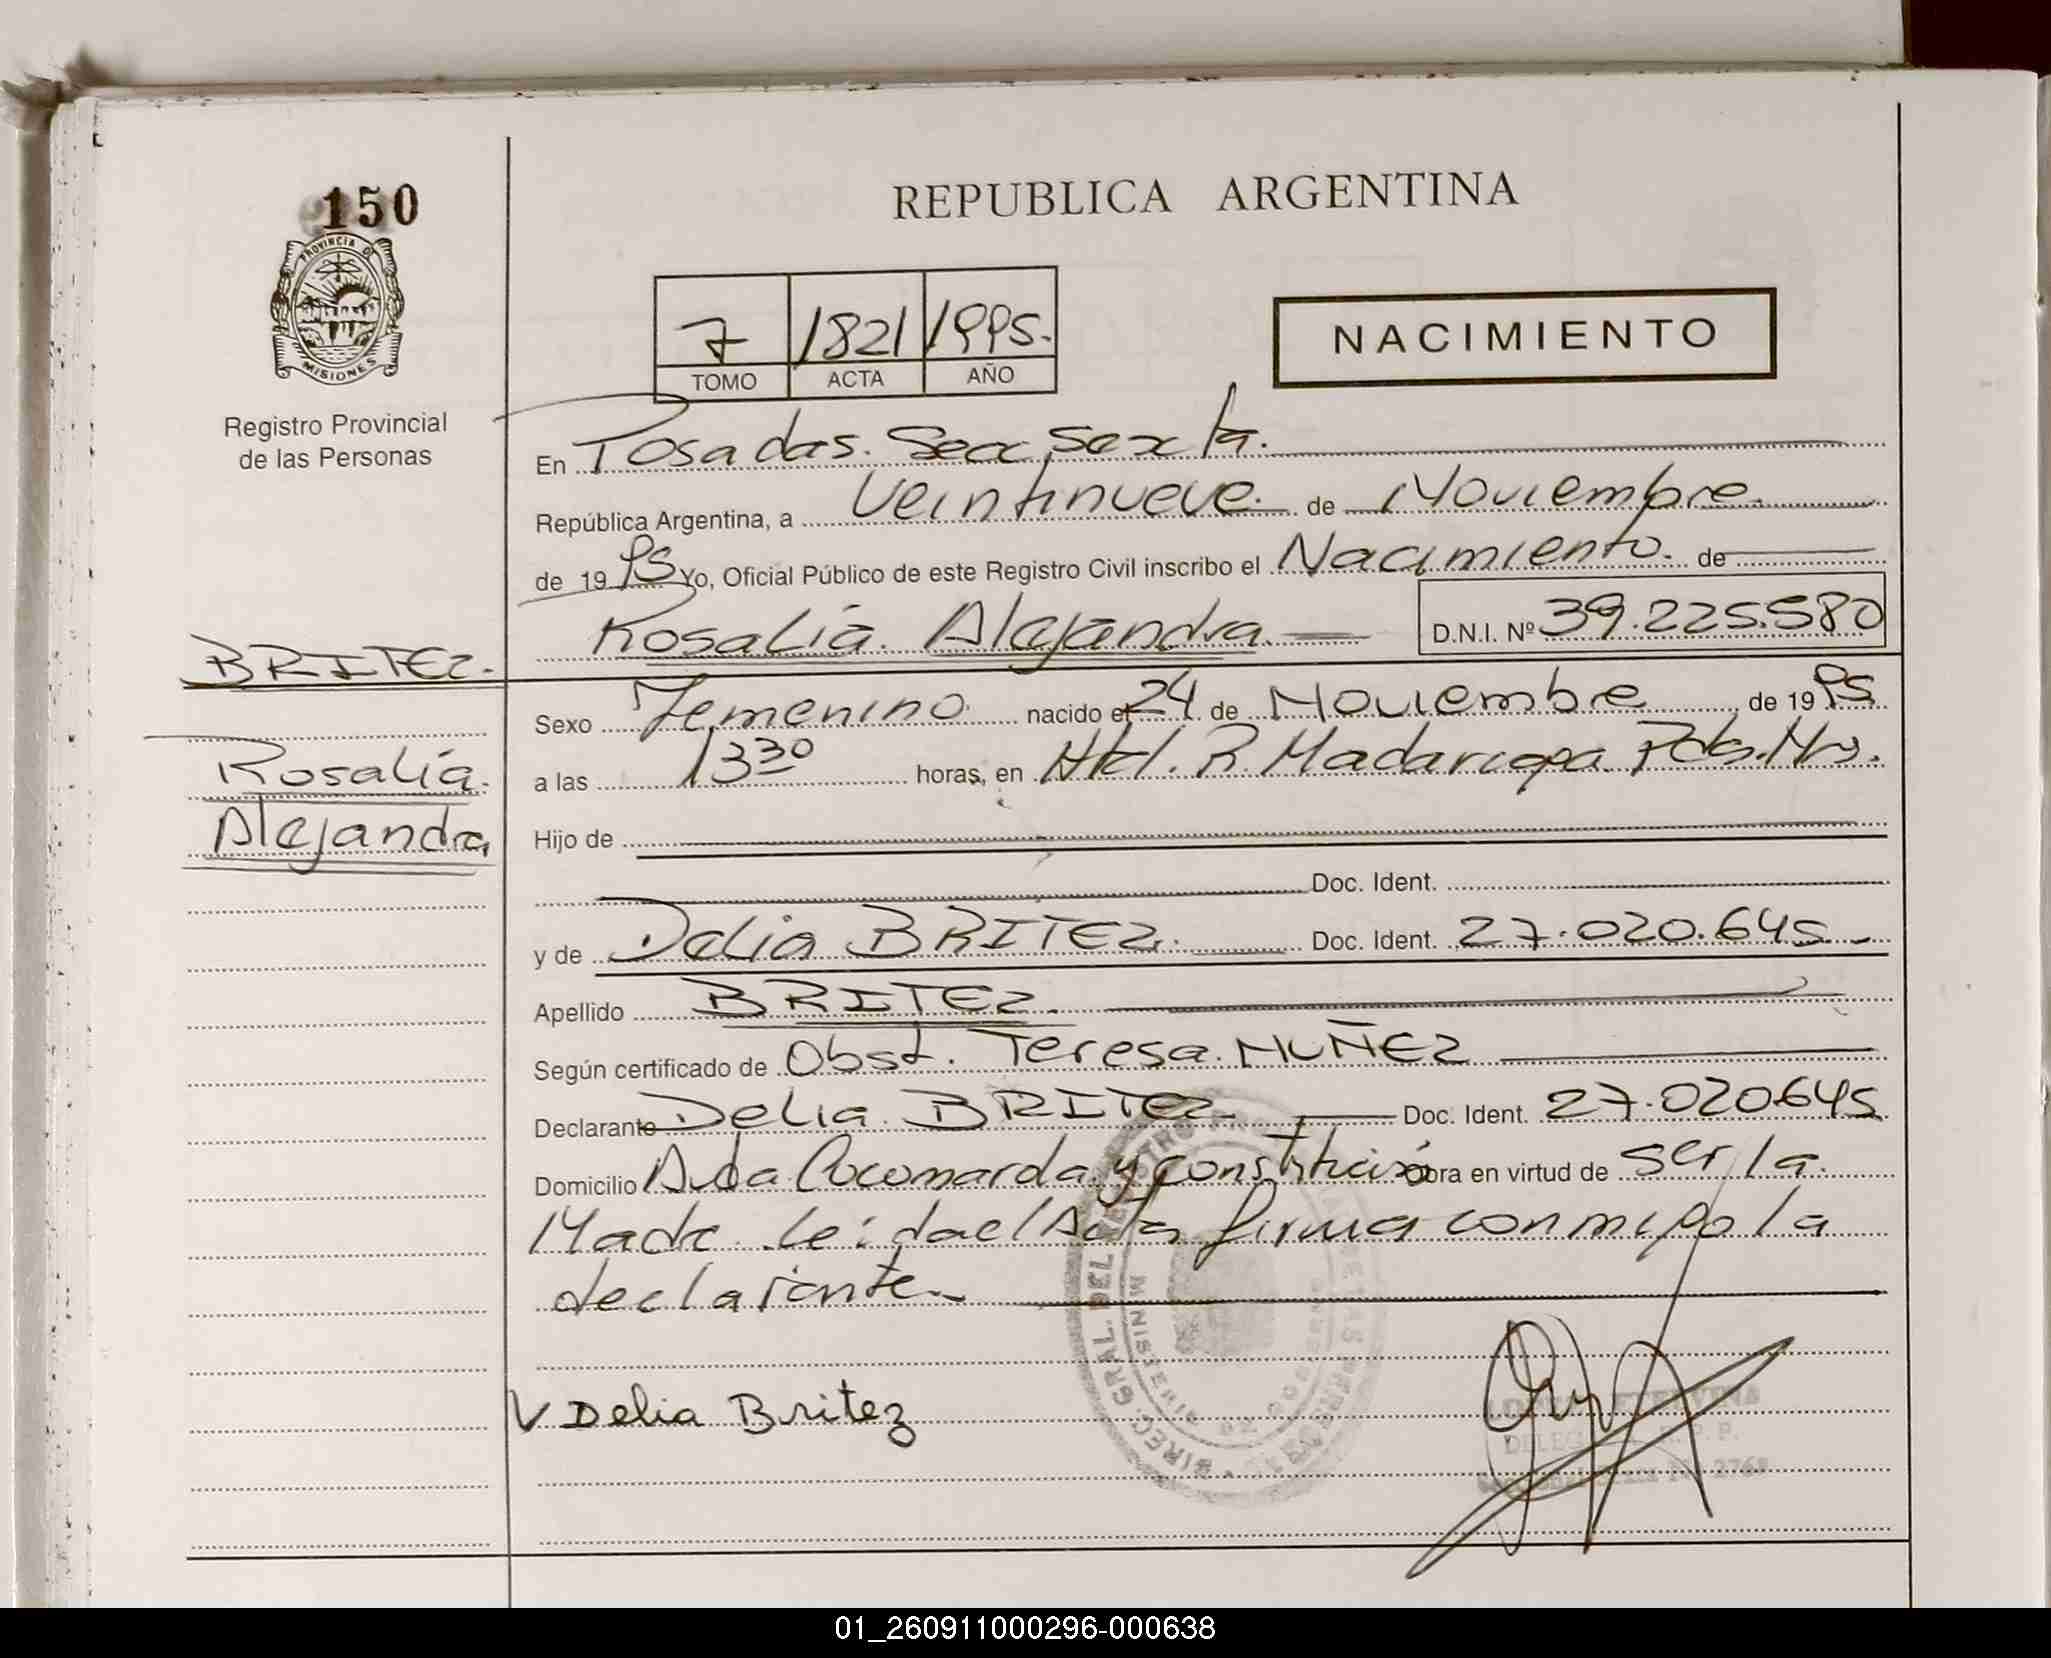 150
PROVINCIA DE
MISIONES
Registro Provincial
de las Personas
REPUBLICA ARGENTINA
7 1821 1995.
TOMO ACTA AÑO
NACIMIENTO
En Posadas. Secc. Sexta.
República Argentina, a Veintinueve. de Noviembre
de 1995 Yo, Oficial Público de este Registro Civil inscribo el Nacimiento. de
Rosalia. Alejandra. D.N.I. Nº 39.225.580
BRITEZ.
Rosalía.
Alejandra
Sexo Femenino. nacido el 24 de Noviembre de 1995
a las 13 30 horas, en Htal. R. Madariaga. Pdas. Mns.
Hijo de
Doc. Ident.
y de Delia BRITEZ. Doc. Ident. 27.020.645
Apellido BRITEZ.
Según certificado de Obst. Teresa. NUÑEZ
Declarante Delia. BRITEZ Doc. Ident. 27.020645
Domicilio Avda Cocomarola y constitución obra en virtud de ser la
Madre. Leída el Acta firma conmigo la
declarante.
V Delia Britez
DIREC. GRAL. DEL REGISTRO
MINISTERIO DE GOBIERNO
R. P. P.
2768
01_260911000296-000638